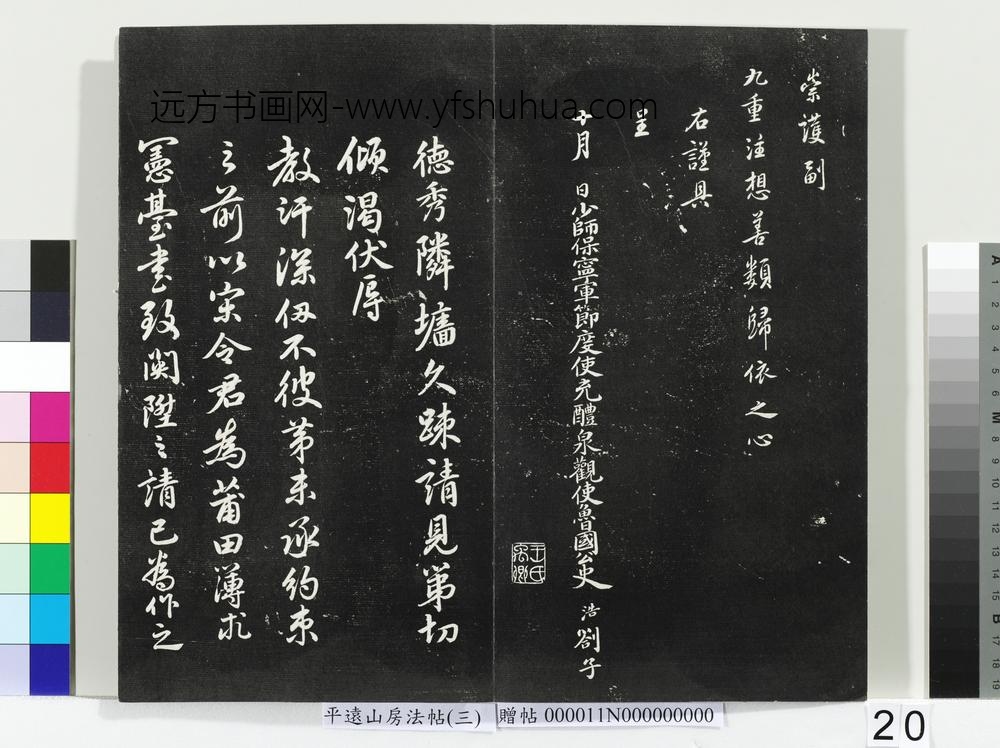 崇護副
九重注想善類歸依之心
右謹具
呈
十月 日少師保寧軍節度使充醴泉觀使魯國公史浩劄子
德秀隣墻久踈請見第切
傾渴伏辱
教汗深仭不彼第未承約束
之前以宋令君為莆田薄求
憲臺書致闕陞之請已為作之
远方书画网-www.yfshuhua.com
平遠山房法帖(三) 贈帖 000011N000000000
20